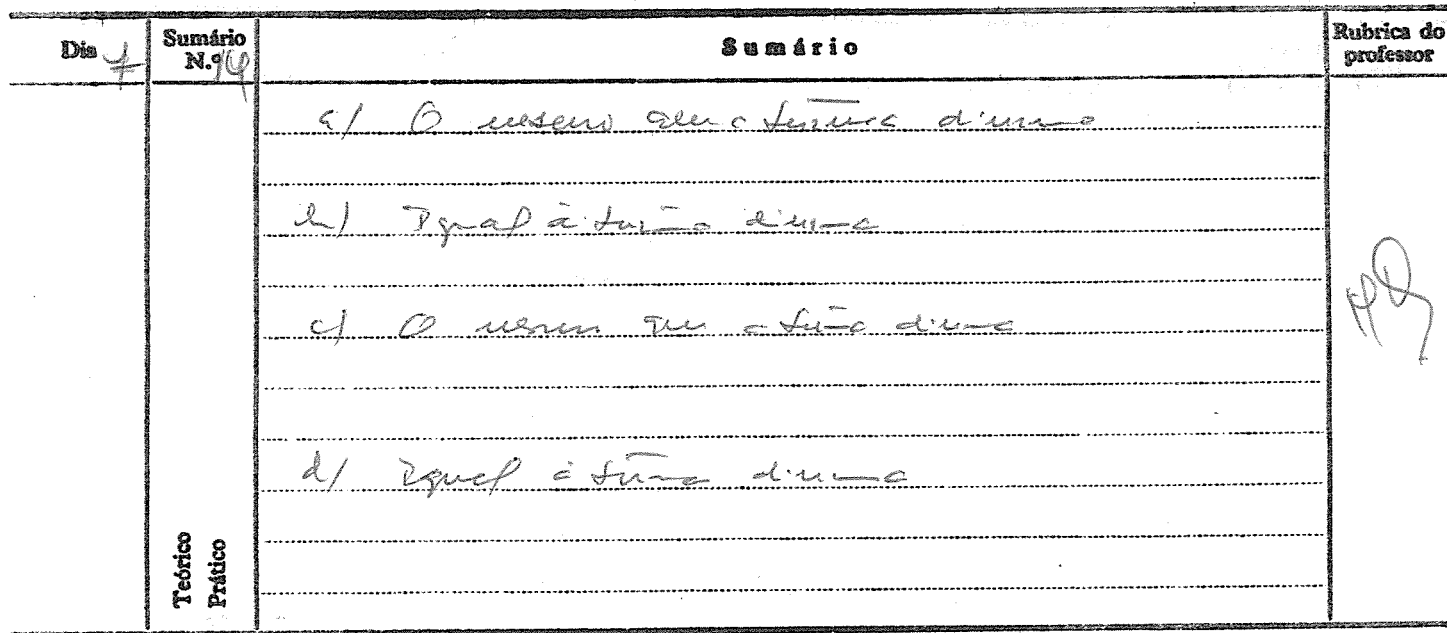 Dia 7
Sumário N.º 14
Sumário
Rubrica do professor
a) O mesmo que a turma diurna
b) Igual à turma diurna
c) O mesmo que a turma diurna
d) Igual à turma diurna
Teórico
Prático